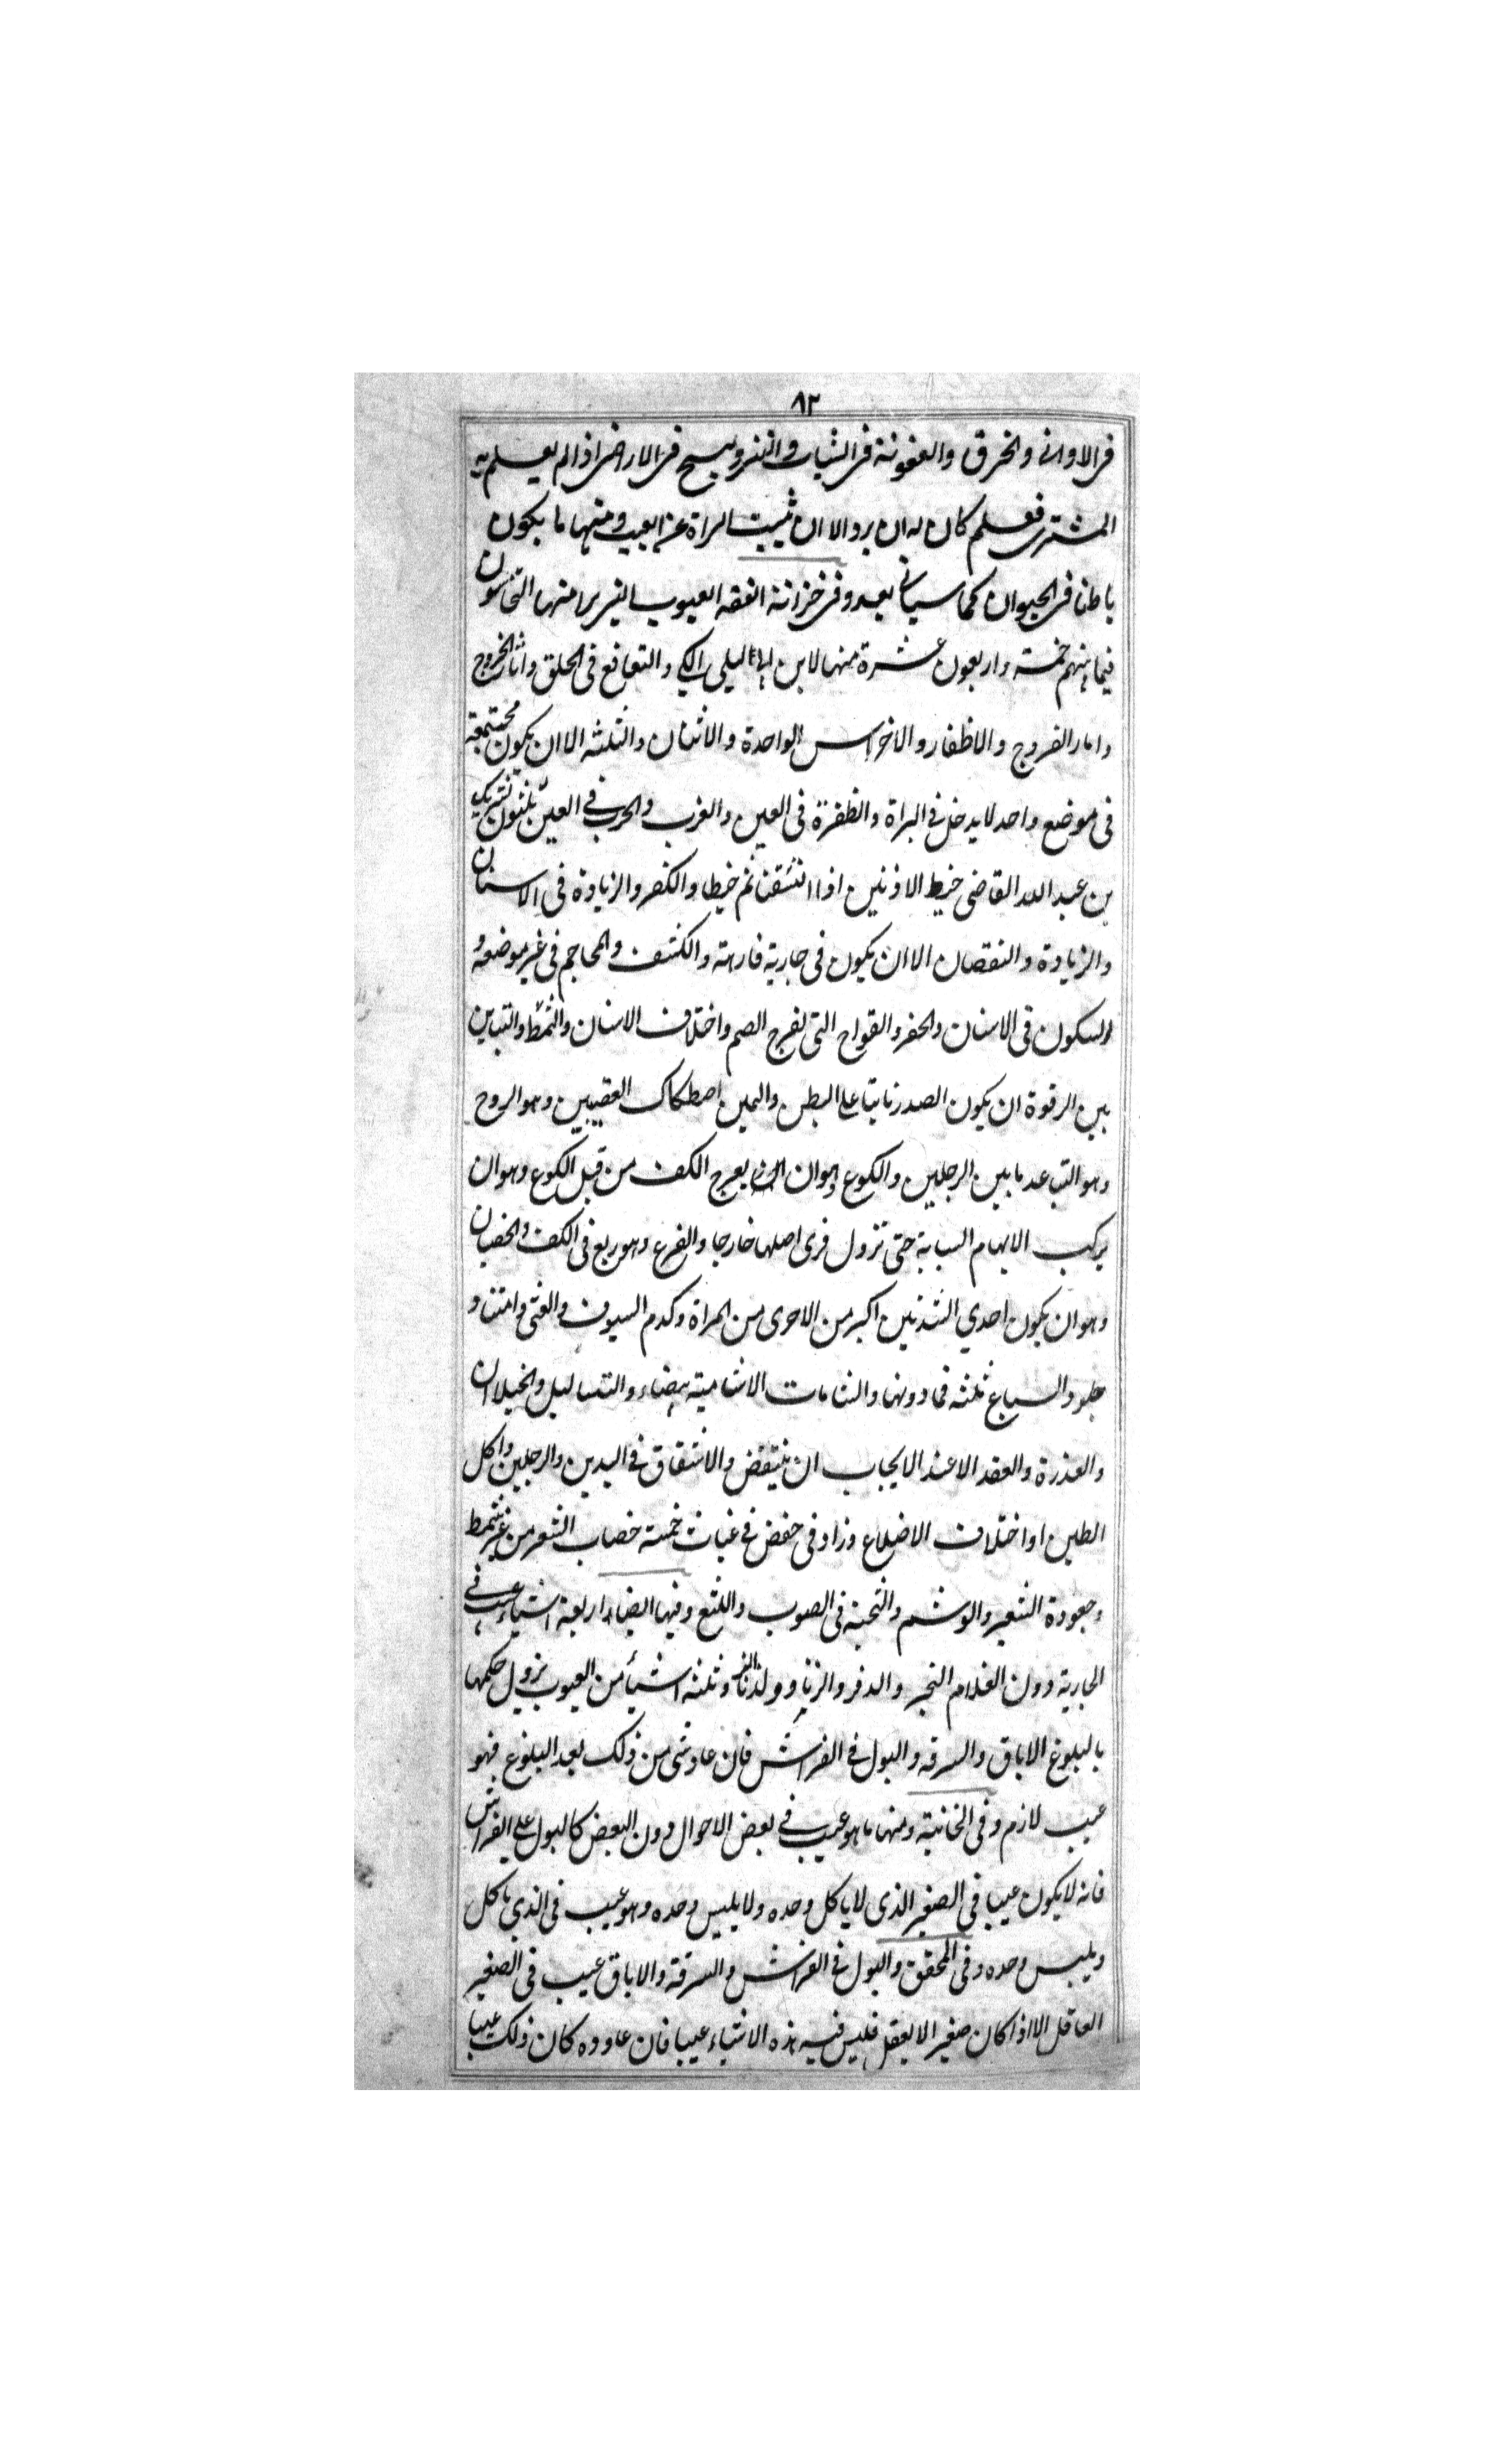 ٨٢
فى الاوانى والخرق والعفونة فى الثياب والنز والسبخ فى الاراضى اذا لم يعلم به
المشترى فعلم كان له ان يرد الا ان يثبت البراة عن العيب ومنها ما يكون
باطنا فى الحيوان كما سياتى بعد وفى خزانة الفقه العيوب التى يرا منها النخاسون
فيما بينهم خمسة واربعون عشرة منها لابن ابى ليلى الكى والتعاقع فى الحلق واثار الخروج
واثار القروح والاظفار والاضراس الواحدة والاثنان والثلثه الا ان يكون مجتمعة
فى موضع واحد لا يدخل فى البراة والظفرة فى العين والغرب والجرب فى العين ثلثون لشريك
بن عبد الله القاضى خيط الاذنين اذا انشقتا ثم خيطا والكسر والزيادة فى الاسنان
والزيادة والنقصان الا ان يكون فى جارية فارهة والكشف والمحاجم فى غير موضعه و
السكون فى الاسنان والحفر والقواح التى لفرج الصم واختلاف الاسنان والشمط والتباين
بين الرقوة ان يكون الصدر ناتيا على البطن واليمين اصطكاك العقبين وهو الروح
وهو التباعد ما بين الرجلين والكوع وهو ان يعرج الكف من قبل الكوع وهو ان
يركب الابهام السبابة حتى تزول فرى اصلها خارجا والفرع وهو ريع فى الكف والخصيان
وهو ان يكون احدي الثديين اكبر من الاخرى من المراة وكدم السيوف والعنى وامتنا و
جلود السباع ثلثه فما دونها والشامات الا شامية بيضاء والثساليل والخيلان
والعذرة والعقد الا عند الايجاب ان ينتقض والانشقاق فى اليدين والرجلين واكل
الطين او اختلاف الاضلاع وزاد فى حفص فى غياث خمسة خضاب الشعر من غير شمط
وجعودة الشعر والوشم والتحبة فى الصوب واللثغ وفيها ايضا اربعة اشياء عيب فى
الجارية دون الغلام البخر والدفر والزنا وولد الزنا وثلثه اشيأ من العيوب يزول حكمها
بالبلوغ الاباق والسرقه والبول فى الفراش فان عاد شى من ذلك بعد البلوغ فهو
عيب لازم وفى الخانية ومنها ما هو عيب فى بعض الاحوال دون البعض كالبول على الفراش
فانه لا يكون عيبا فى الصغير الذى لا ياكل وحده ولا يلبس وحده وهو عيب فى الذي ياكل
ويلبس وحده وفى المحقق والبول فى الفراش والسرقة والاباق عيب فى الصغير
العاقل الا اذا كان صغيرا لا يعقل فليس فيه هذه الاشياء عيبا فان عاوده كان ذلك عيبا